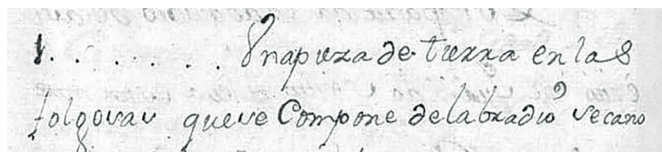 1. . . . . . . Vna pieza de tierra en las
folgosas que se Compone de labradio secano